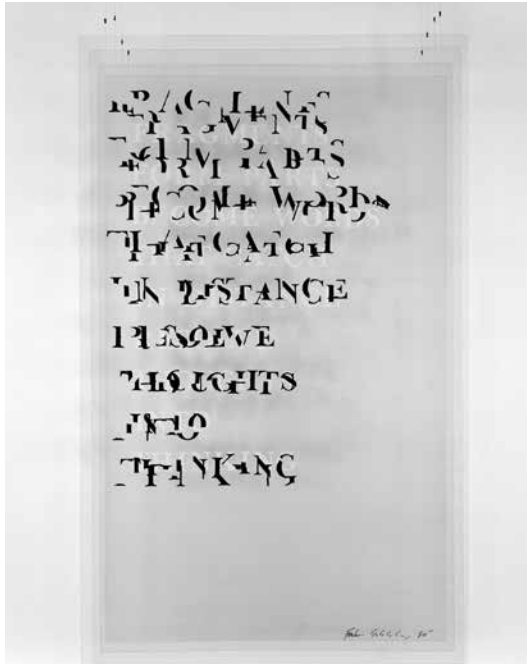 FRAGMENTS
FORM PARTS
BECOME WORDS
THAT
IN DISTANCE
RESOLVE
THOUGHTS
INTO
THINKING